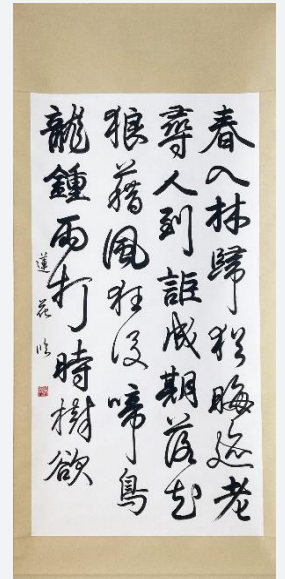 春入林歸猶晦迹老
尋人到詎成期落花
狼藉風狂後啼鳥
龍鍾雨打時樹欲
蓮花臨